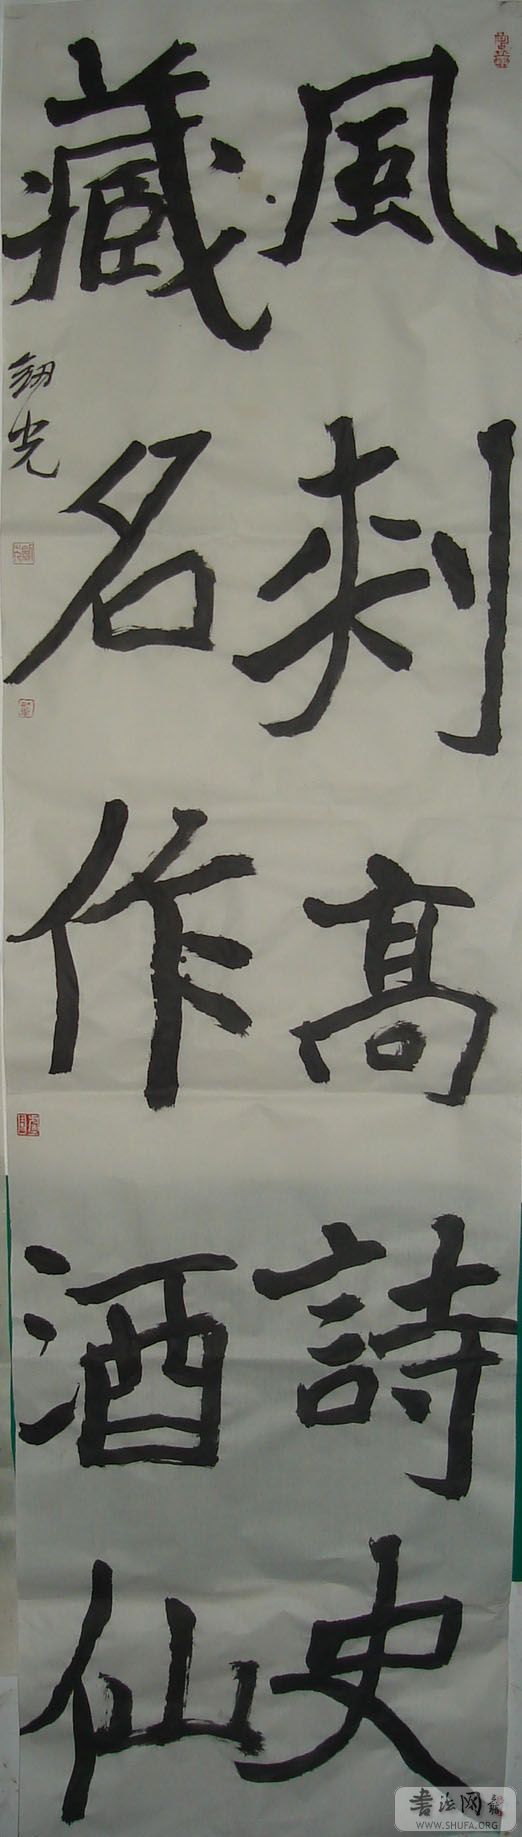 風刺高詩史
藏名作酒仙
劍光
書法网
WWW.SHUFA.ORG